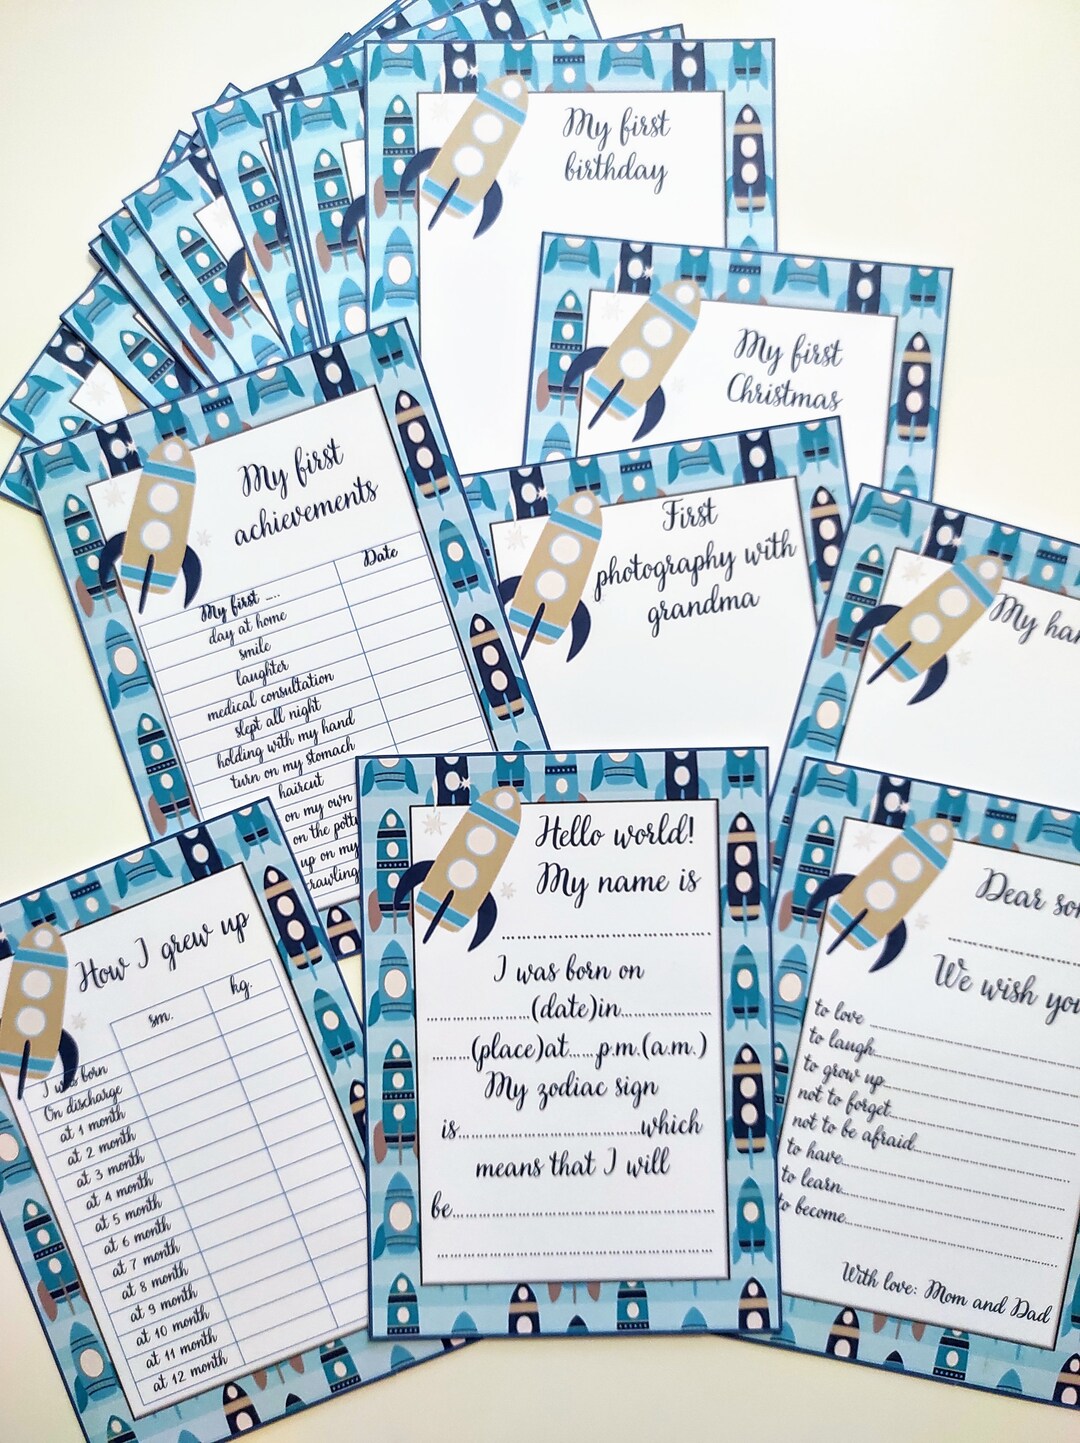 My first
birthday
My first
Christmas
My first
achievements
Date
My first ....
day at home
smile
laughter
medical consultation
slept all night
holding with my hand
turn on my stomach
haircut
on my own
on the potty
up on my
crawling
First
photography with
grandma
My
How I grew up
sm. kg.
I was born
On discharge
at 1 month
at 2 month
at 3 month
at 4 month
at 5 month
at 6 month
at 7 month
at 8 month
at 9 month
at 10 month
at 11 month
at 12 month
Hello world!
My name is
................................................
I was born on
........................(date)in.....................
.........(place)at......p.m.(a.m.)
My zodiac sign
is...........................................which
means that I will
be............................................................
................................................................
Dear
............................
We wish you
to love ..............................................
to laugh.............................................
to grow up..........................................
not to forget........................................
not to be afraid...................................
to have..............................................
to learn.............................................
to become..........................................
.......................................................
With love: Mom and Dad